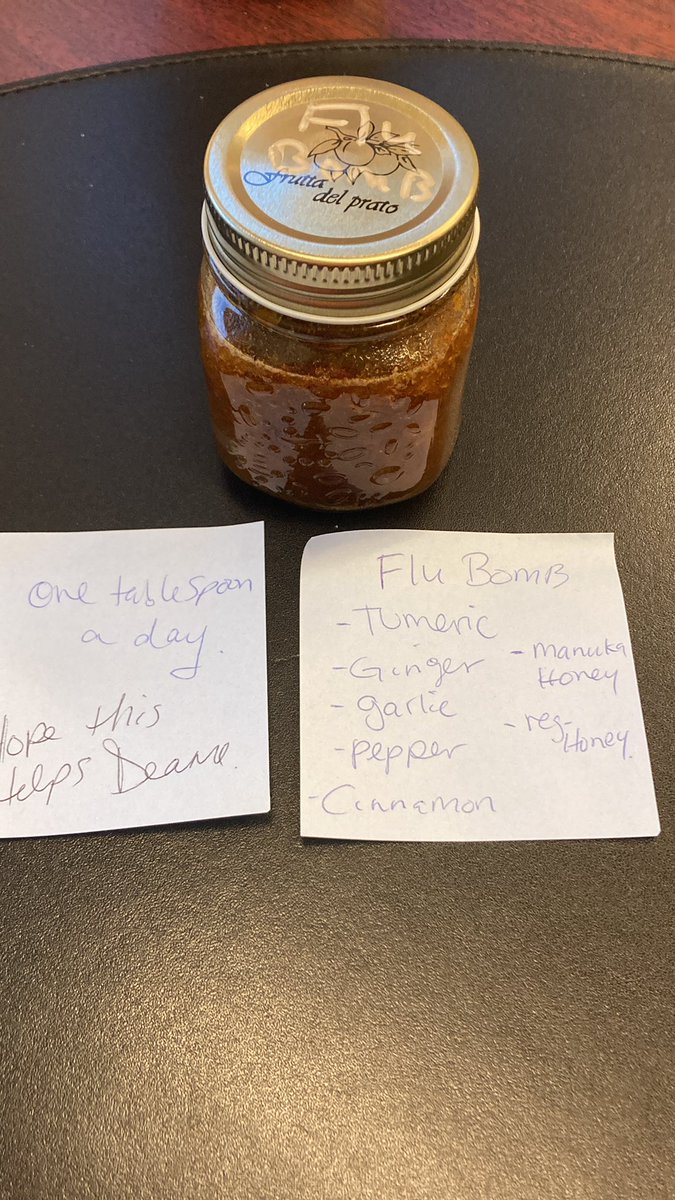 Flu
BomB
frutta
del prato
one tablespoon
a day.
Hope this
Helps Deane.
Flu BomB
- Tumeric
- Ginger
- garlic
- pepper
- Cinnamon
- manuka
Honey
- reg-
Honey.